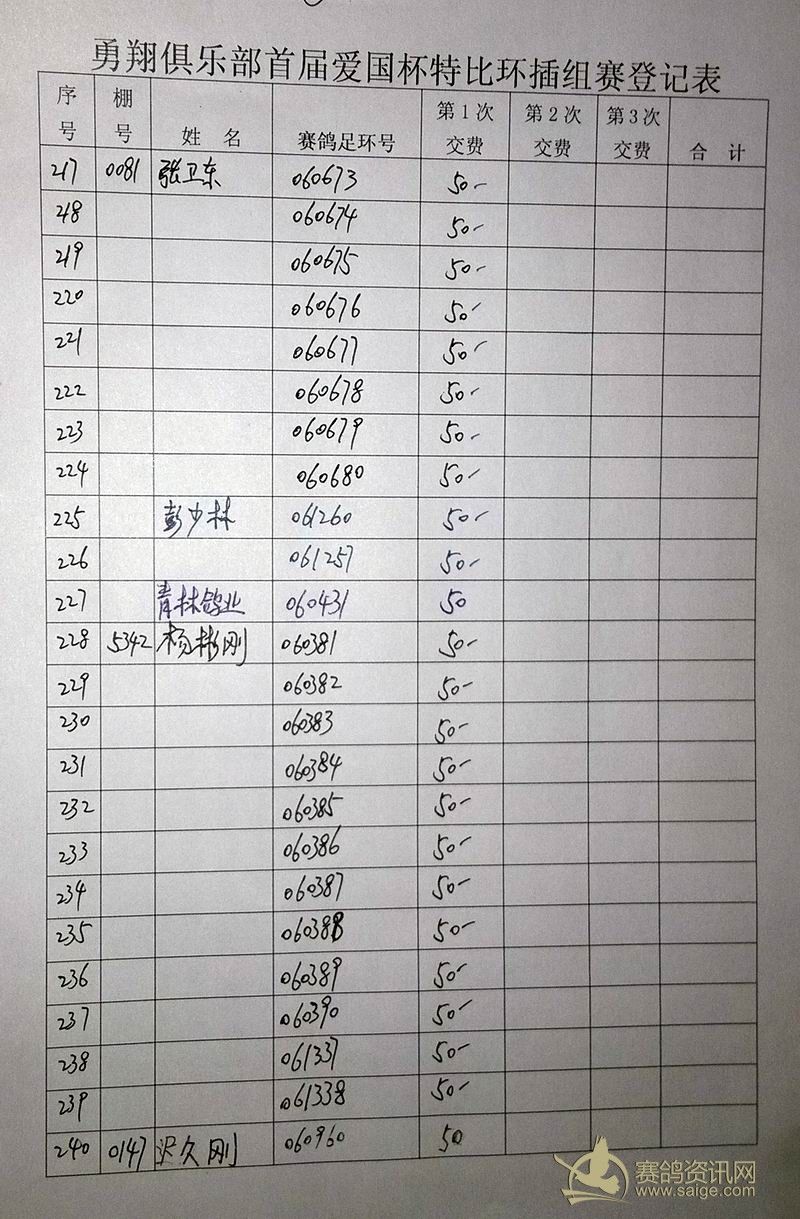 勇翔俱乐部首届爱国杯特比环插组赛登记表
序号 棚号 姓 名 赛鸽足环号 第1次交费 第2次交费 第3次交费 合 计
217 0081 张卫东 060673 50-
218 060674 50-
219 060675 50-
220 060676 50-
221 060677 50-
222 060678 50-
223 060679 50-
224 060680 50-
225 彭少林 061260 50-
226 061257 50-
227 青林鸽业 060431 50
228 5342 杨彬刚 060381 50-
229 060382 50-
230 060383 50-
231 060384 50-
232 060385 50-
233 060386 50-
234 060387 50-
235 060388 50-
236 060389 50-
237 060390 50-
238 061337 50-
239 061338 50-
240 0147 久刚 060960 50
赛鸽资讯网
www.saige.com